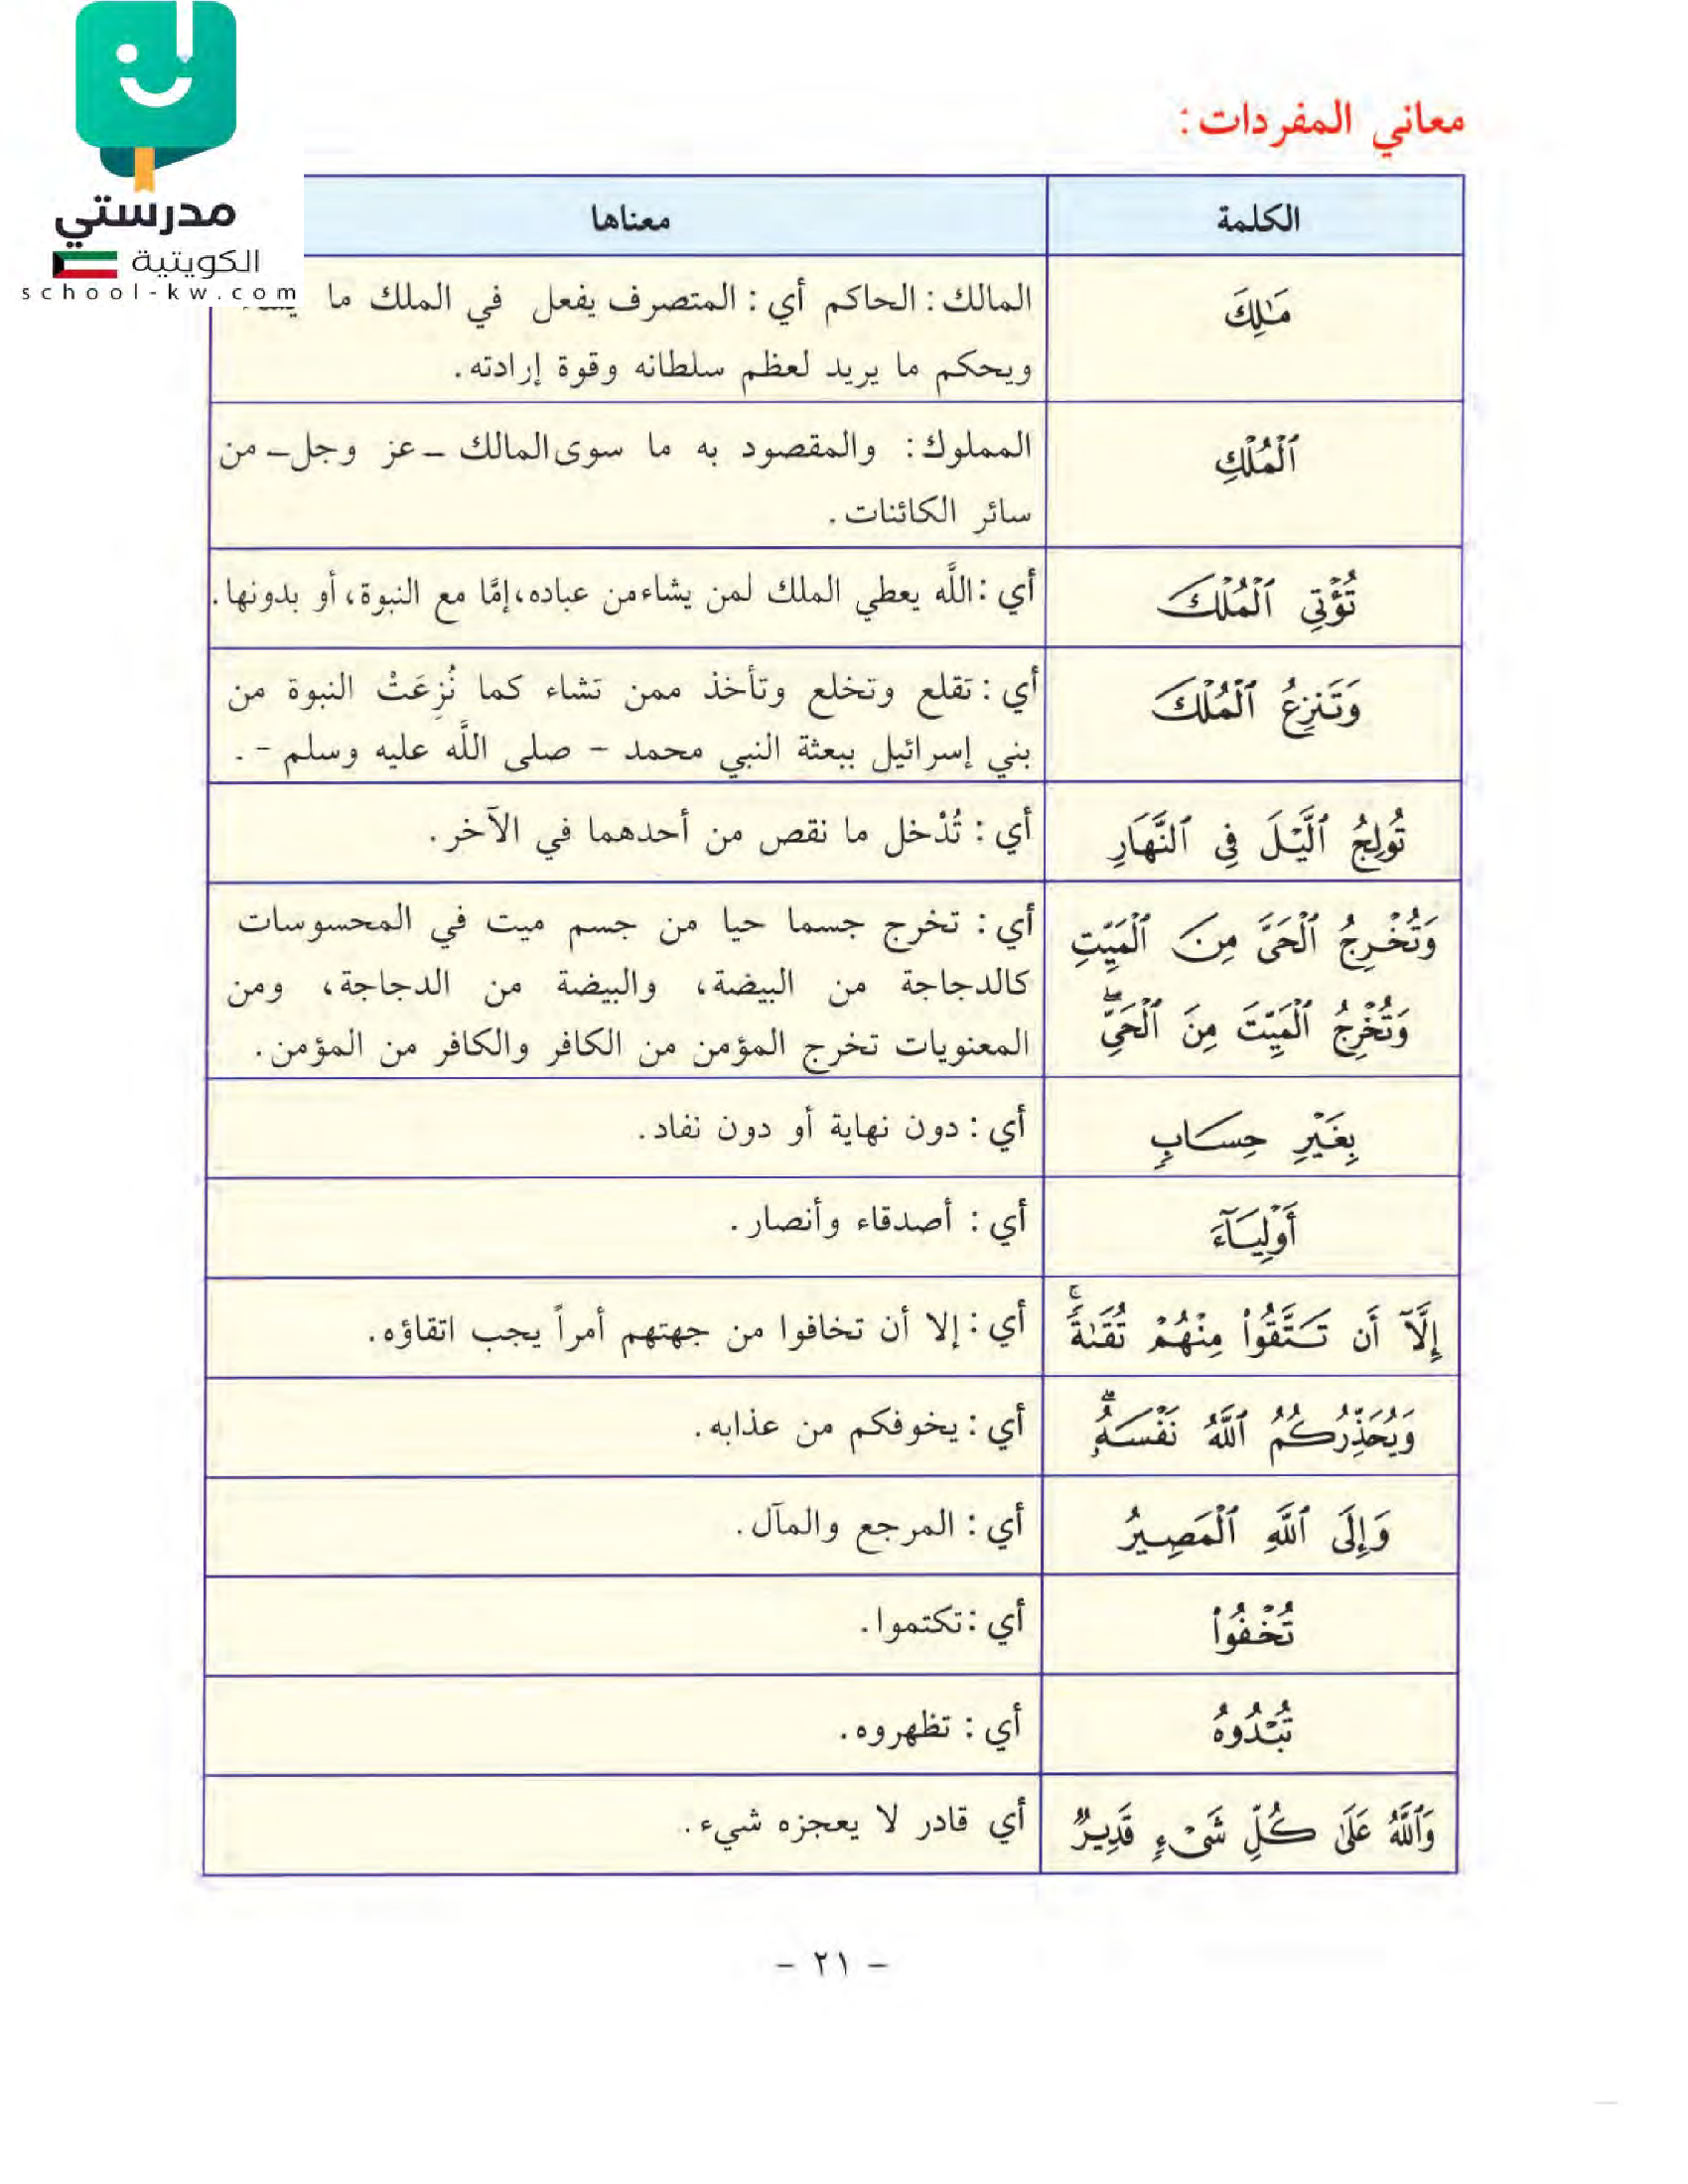 مدرستي
الكويتية
school-kw.com
معاني المفردات :
الكلمة
معناها
مَٰلِكَ
المالك : الحاكم أي : المتصرف يفعل في الملك ما
ويحكم ما يريد لعظم سلطانه وقوة إرادته .
ٱلْمُلْكِ
المملوك : والمقصود به ما سوى المالك – عز وجل – من
سائر الكائنات .
تُؤْتِى ٱلْمُلْكَ
أي : اللَّه يعطي الملك لمن يشاء من عباده، إمَّا مع النبوة، أو بدونها .
وَتَنزِعُ ٱلْمُلْكَ
أي : تقلع وتخلع وتأخذ ممن تشاء كما نُزِعَتْ النبوة من
بني إسرائيل ببعثة النبي محمد – صلى اللَّه عليه وسلم – .
تُولِجُ ٱلَّيْلَ فِى ٱلنَّهَارِ
أي : تُدْخل ما نقص من أحدهما في الآخر .
وَتُخْرِجُ ٱلْحَىَّ مِنَ ٱلْمَيِّتِ
وَتُخْرِجُ ٱلْمَيِّتَ مِنَ ٱلْحَىِّۖ
أي : تخرج جسما حيا من جسم ميت في المحسوسات
كالدجاجة من البيضة، والبيضة من الدجاجة، ومن
المعنويات تخرج المؤمن من الكافر والكافر من المؤمن .
بِغَيْرِ حِسَابٍ
أي : دون نهاية أو دون نفاد .
أَوْلِيَآءَ
أي : أصدقاء وأنصار .
إِلَّآ أَن تَتَّقُوا۟ مِنْهُمْ تُقَىٰةًۚ
أي : إلا أن تخافوا من جهتهم أمراً يجب اتقاؤه .
وَيُحَذِّرُكُمُ ٱللَّهُ نَفْسَهُۥۗ
أي : يخوفكم من عذابه .
وَإِلَى ٱللَّهِ ٱلْمَصِيرُ
أي : المرجع والمآل .
تُخْفُوا۟
أي : تكتموا .
تُبْدُوهُ
أي : تظهروه .
وَٱللَّهُ عَلَىٰ كُلِّ شَىْءٍ قَدِيرٌ
أي قادر لا يعجزه شيء .
– ٢١ –